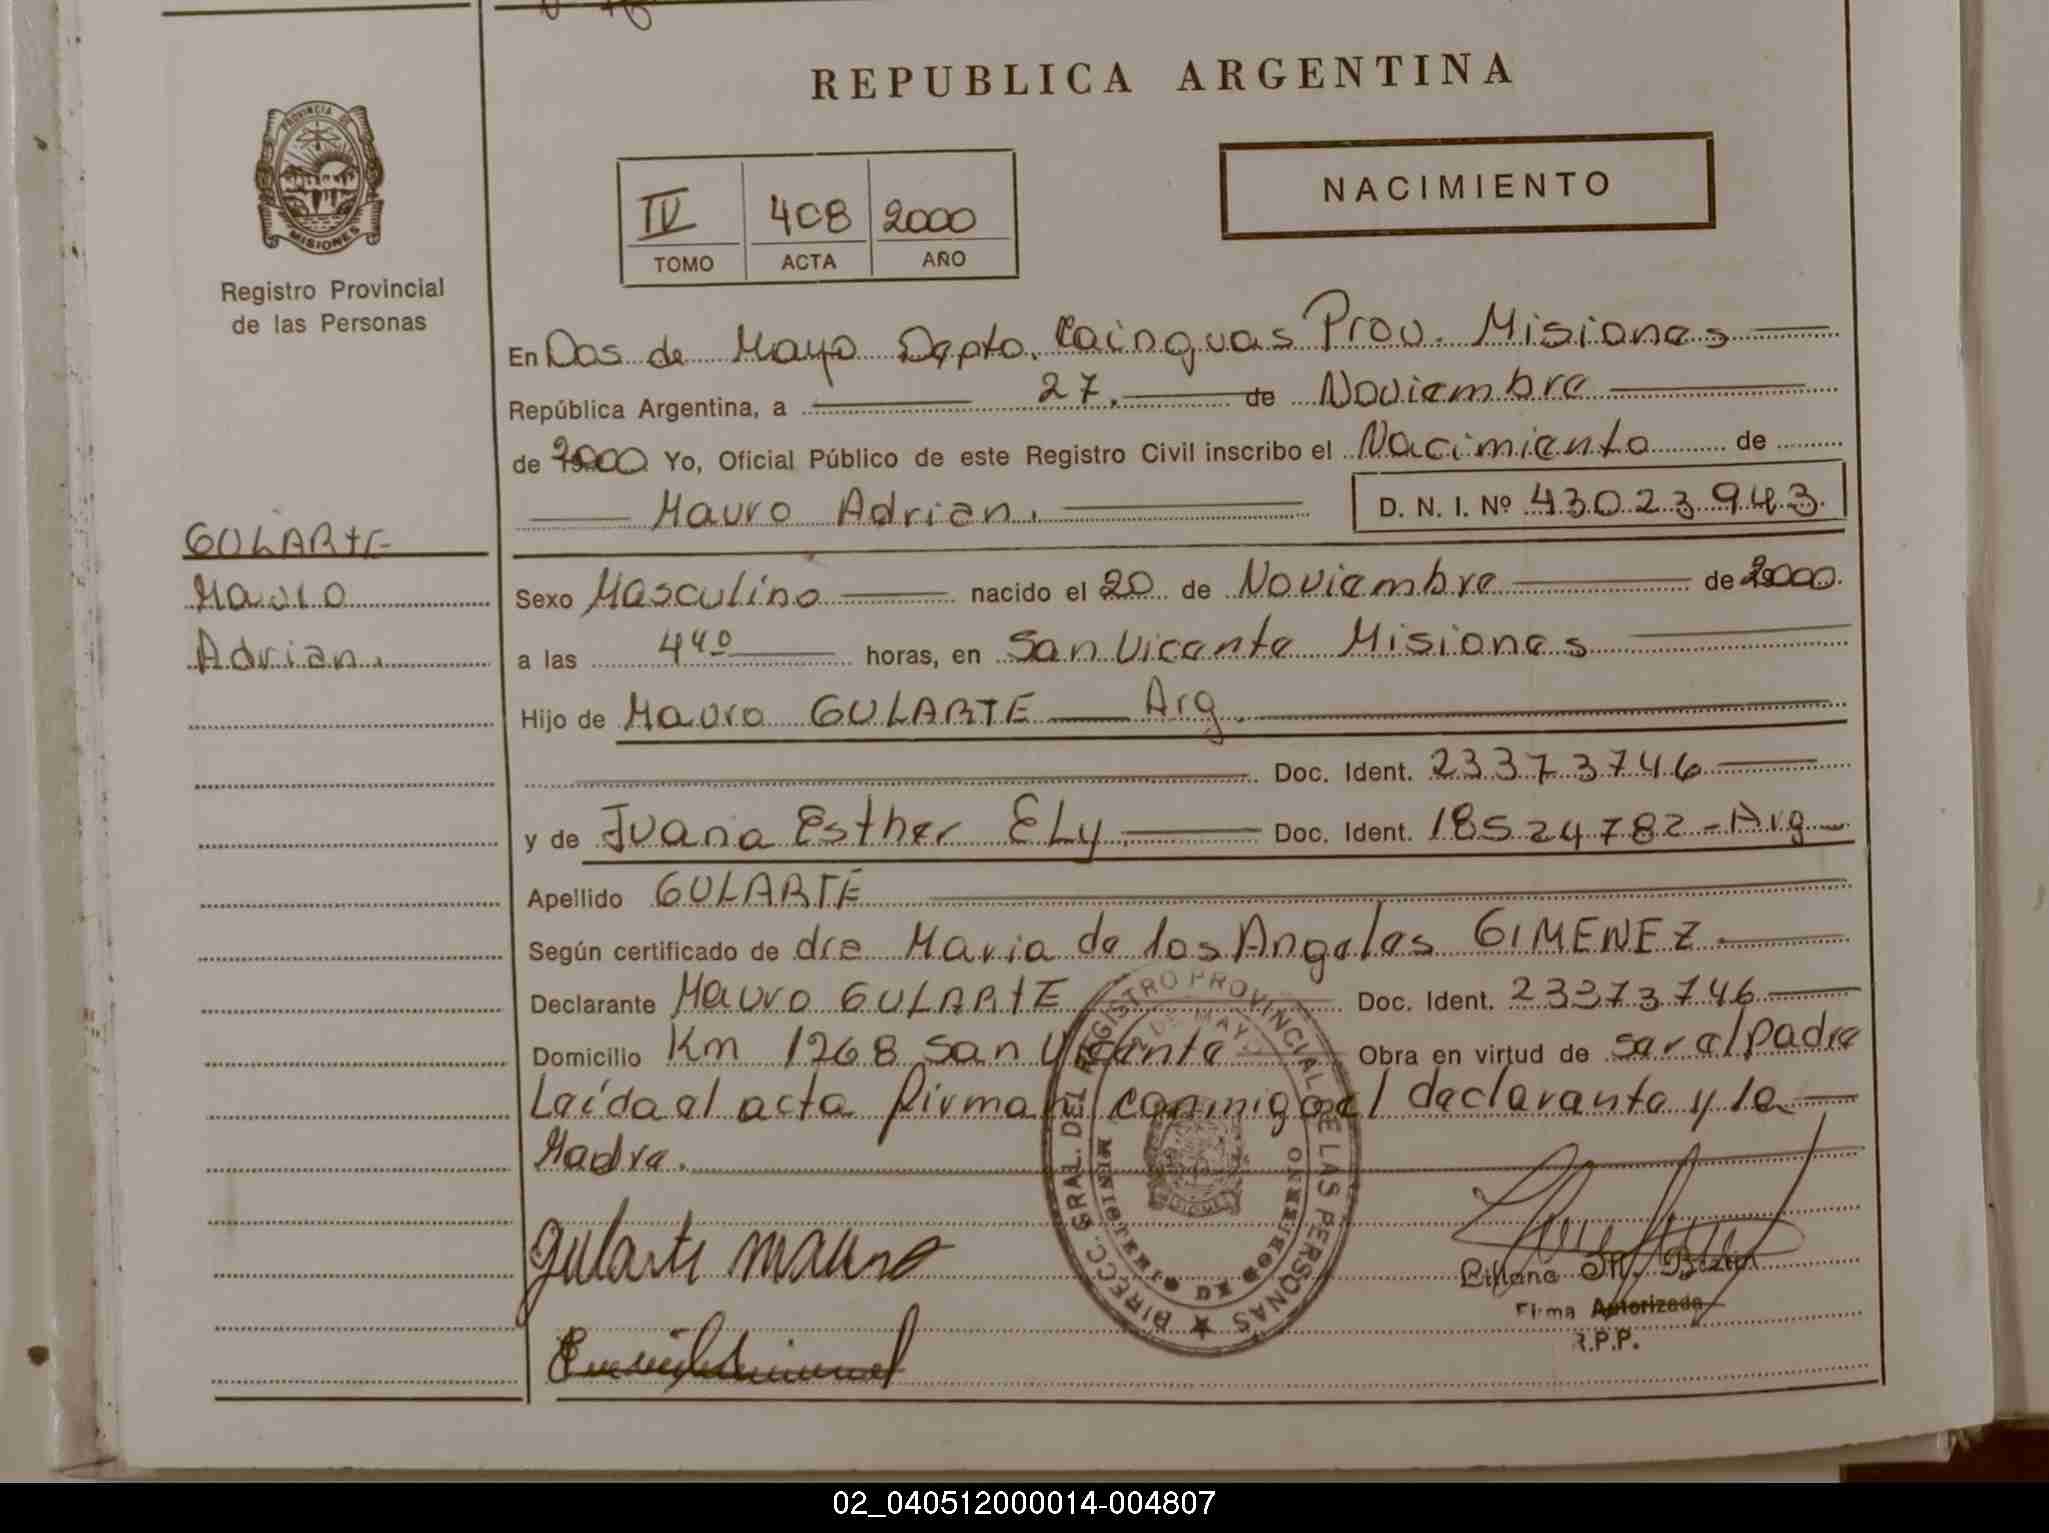 REPUBLICA ARGENTINA
PROVINCIA DE
MISIONES
Registro Provincial
de las Personas
IV 408 2000
TOMO ACTA AÑO
NACIMIENTO
En Dos de Mayo Depto. Cainguas Prov. Misiones
República Argentina, a 27. de Noviembre
de 2000 Yo, Oficial Público de este Registro Civil inscribo el Nacimiento de
Mauro Adrian. D. N. I. Nº 43023943.
GULARTE
Mauro
Adrian.
Sexo Masculino nacido el 20 de Noviembre de 2000.
a las 4 40 horas, en San Vicente Misiones
Hijo de Mauro GULARTE Arg.
Doc. Ident. 23373746
y de Juana Esther ELy Doc. Ident. 18524782 - Arg
Apellido GULARTE
Según certificado de dra Maria de los Angeles GIMENEZ
Declarante Mauro GULARTE Doc. Ident. 23373746
Domicilio Km 1268 San Vicente Obra en virtud de ser el padre
Leída el acta firman conmigo el declarante y la
Madre.
DIRECC. GRAL. DEL REGISTRO PROVINCIAL DE LAS PERSONAS
DE MAYO
MINISTERIO DE GOBIERNO
Gularte Mauro
Liliana M.
Firma Autorizada
R.P.P.
02_040512000014-004807